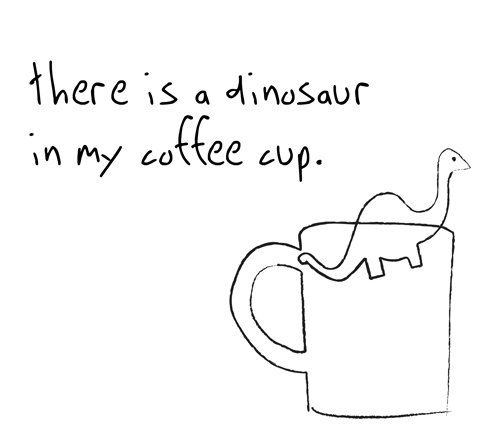 there is a dinosaur
in my coffee cup.